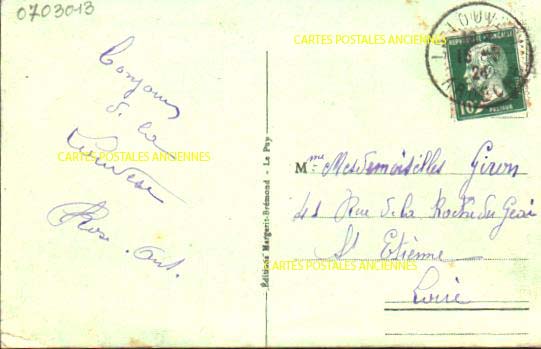 0703013
Bonjour
de la
Louvesc
Rose. Ant.
Éditions Margerit-Brémond - Le Puy
RÉPUBLIQUE FRANÇAISE
10c
POSTES
Mme Mesdemoiselles Giron
41 Rue de la Roche du Geai
St Etienne
Loire
CARTES POSTALES ANCIENNES
CARTES POSTALES ANCIENNES
CARTES POSTALES ANCIENNES